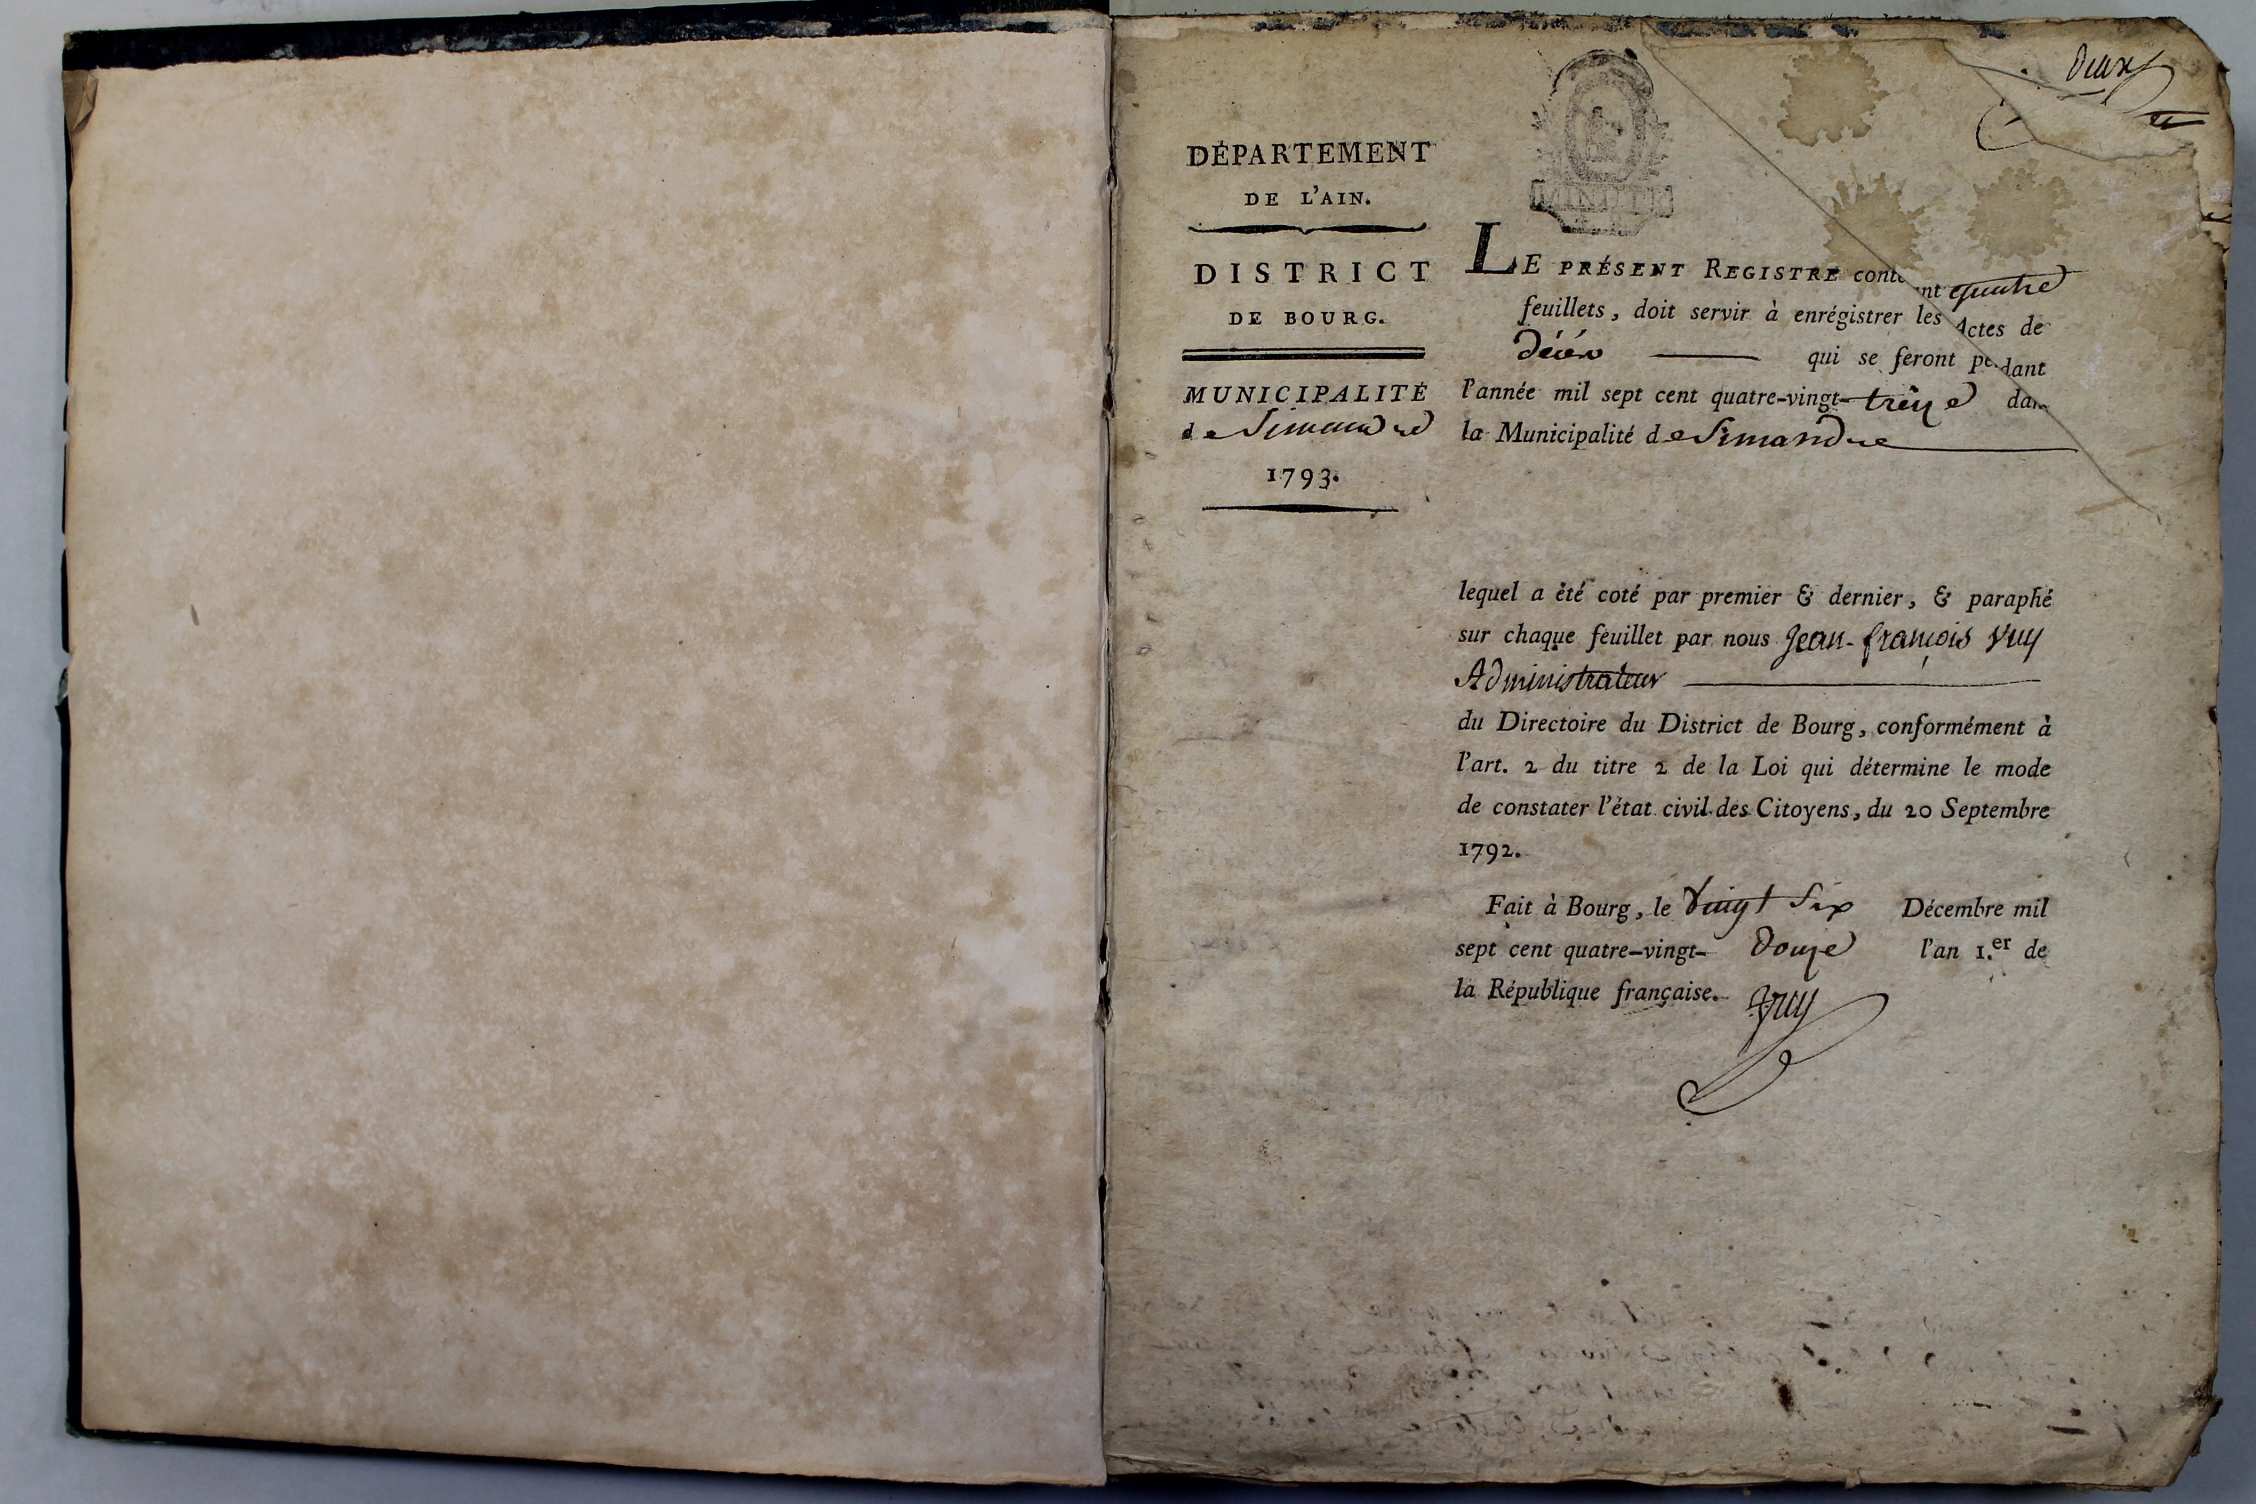 deux
MINUTE
DÉPARTEMENT
DE L'AIN.
DISTRICT
DE BOURG.
MUNICIPALITÉ
de Simandre
1793.
LE PRÉSENT REGISTRE contenant quatre
feuillets, doit servir à enrégistrer les Actes de
décés qui se feront pendant
l'année mil sept cent quatre-vingt-treize dans
la Municipalité de Simandre
lequel a été coté par premier & dernier, & paraphé
sur chaque feuillet par nous Jean-françois Vuy
Administrateur
du Directoire du District de Bourg, conformément à
l'art. 2 du titre 2 de la Loi qui détermine le mode
de constater l'état civil des Citoyens, du 20 Septembre
1792.
Fait à Bourg, le vingt Six Décembre mil
sept cent quatre-vingt-douze l'an 1.er de
la République française. Vuy